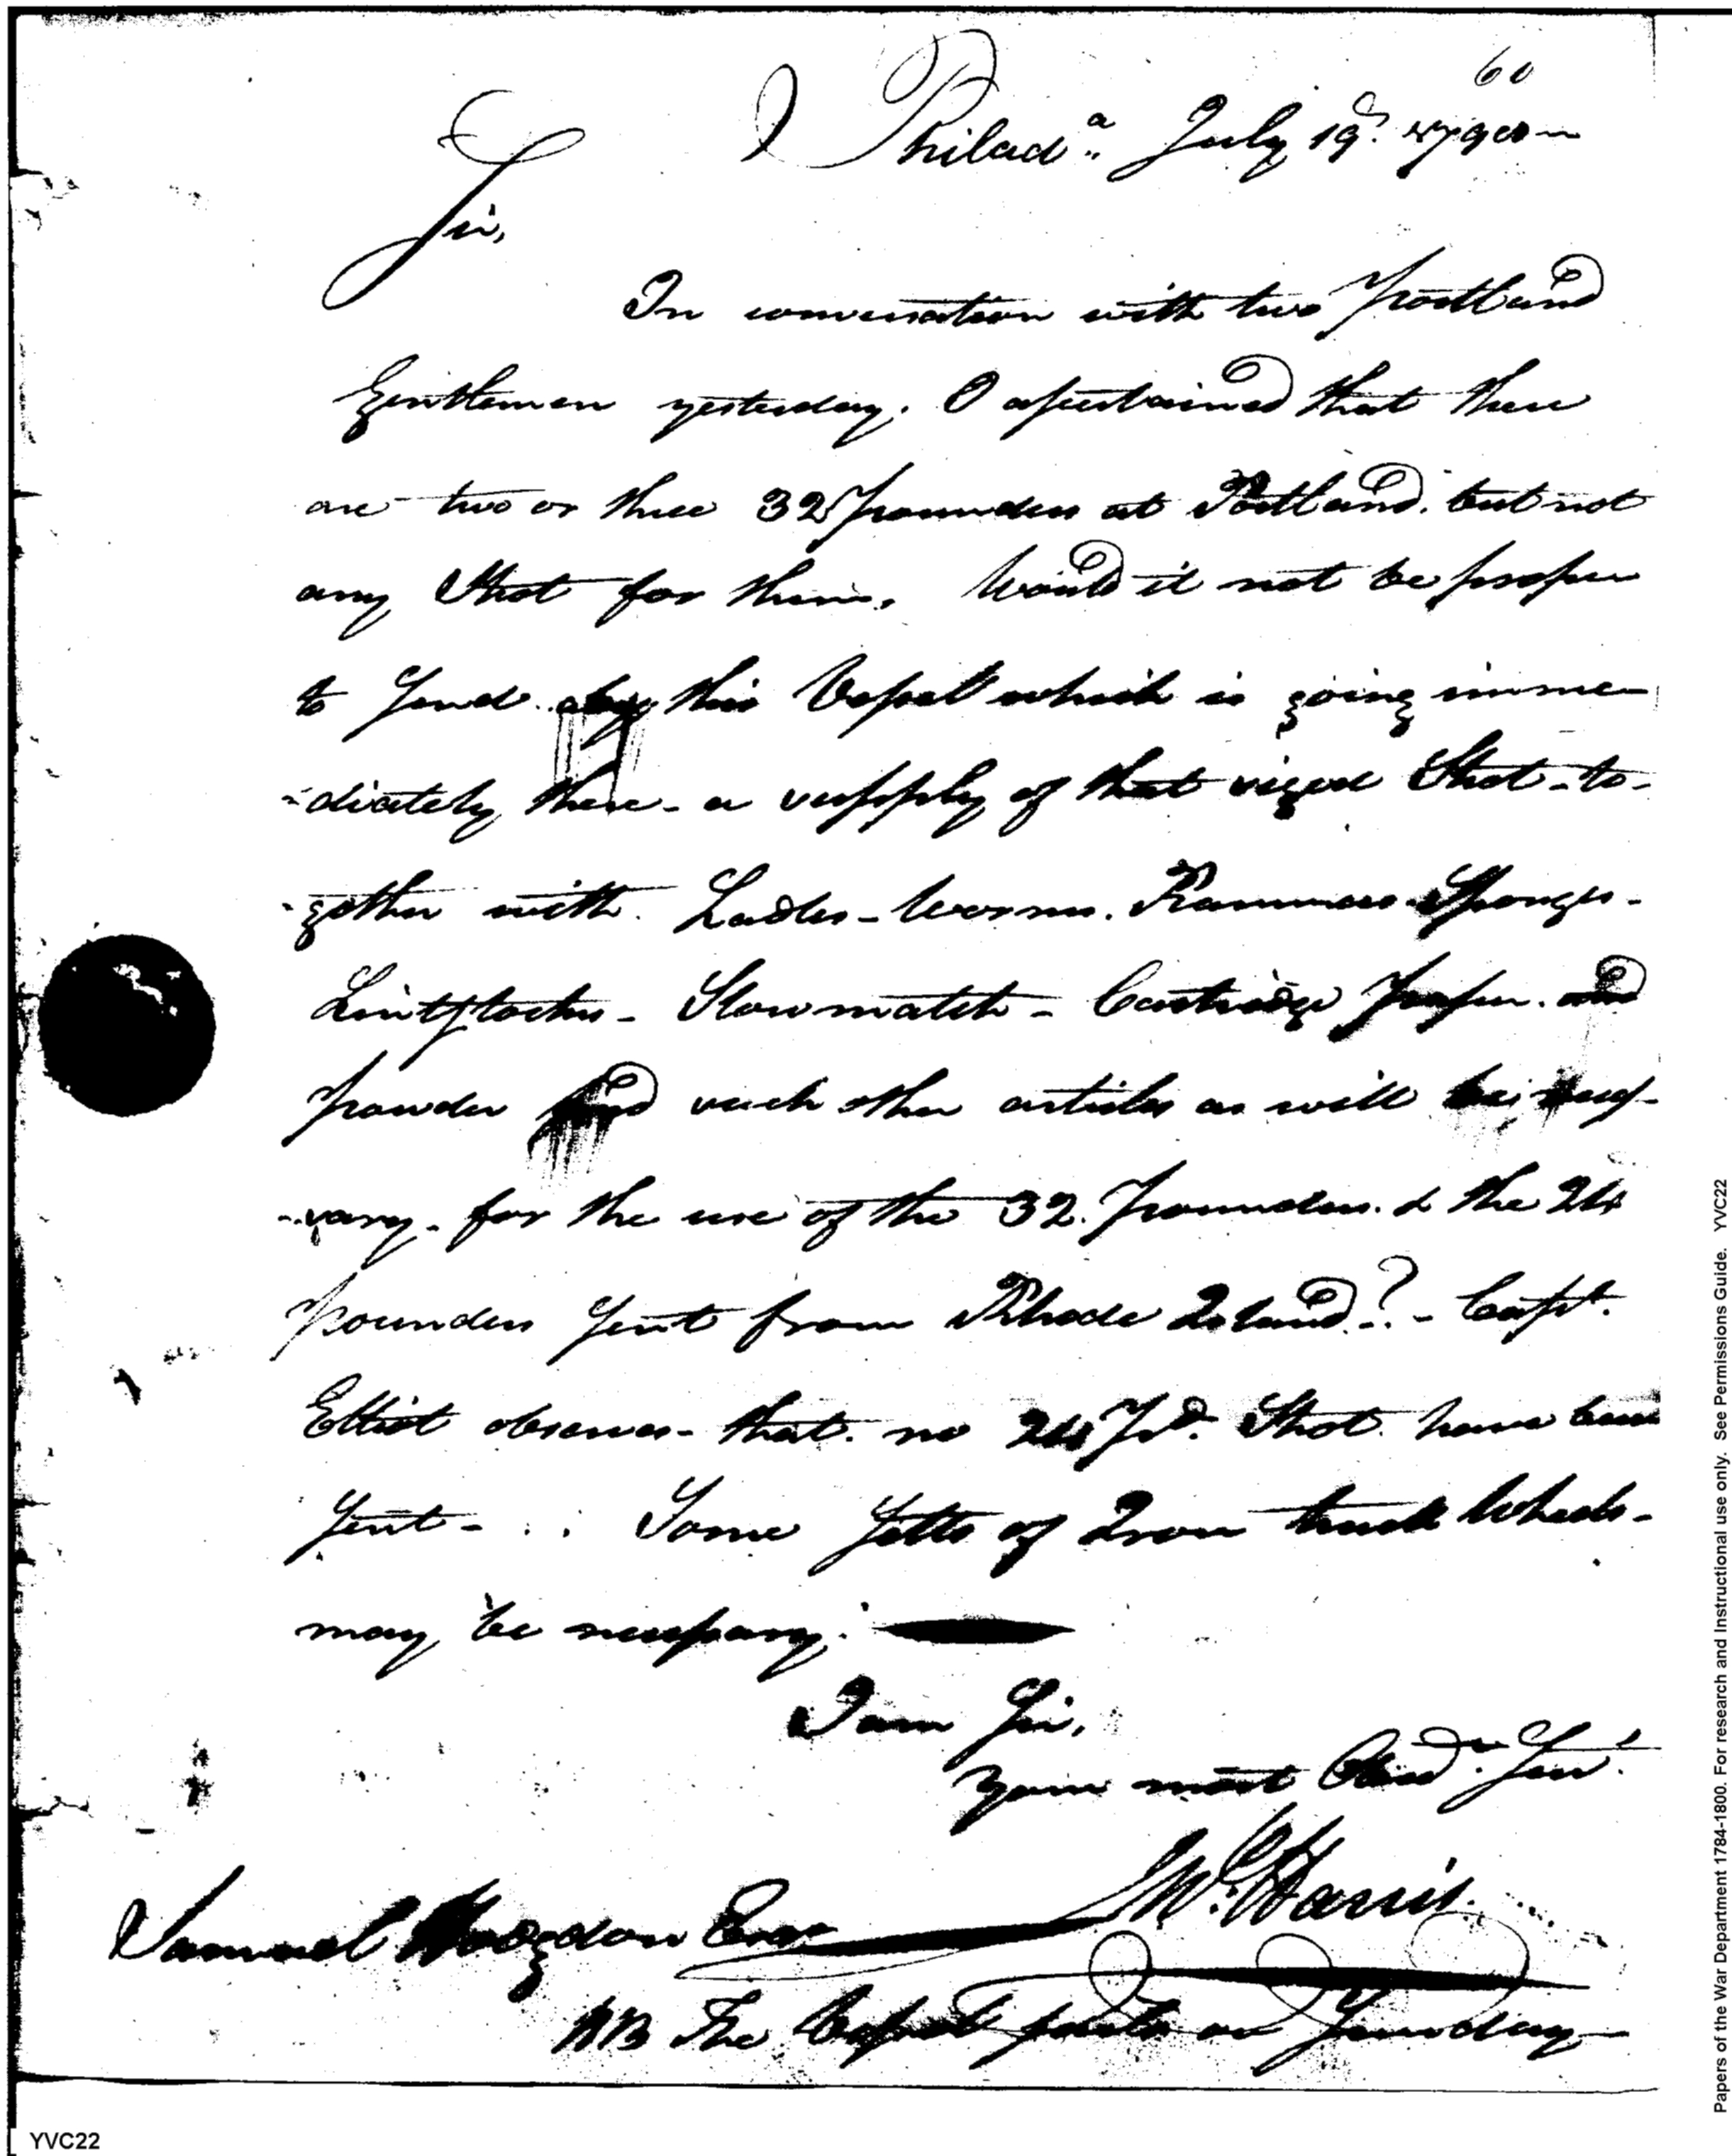 60
Philad.a July 19th 1798
Sir,
In conversation with two Portland
Gentlemen yesterday. I assertained that there
are two or three 32 Pounders at Portland. but not
any Shot for them. Would it not be proper
to send by this Vessel which is going imme-
-diately there - a supply of that sized Shot - to-
-gether with. Ladles - Worms. Rammers Sponges -
Lintstocks - Slowmatch - Cartridge Paper. and
powder and such other articles as will be neces-
-sary - for the use of the 32. Pounders. & the 24
pounders sent from Rhode Island? - Capt.
Elliot observes - that. no 24 Pd. Shot. have been
sent - . : Some setts of Iron truck Wheels -
may be necessary.
I am Sir,
Your most Obed.t Ser.t
W. Harris
Samuel Hodgdon Esqr
NB The Vessel sails on Sunday -
Papers of the War Department 1784-1800. For research and Instructional use only. See Permissions Guide. YVC22
YVC22